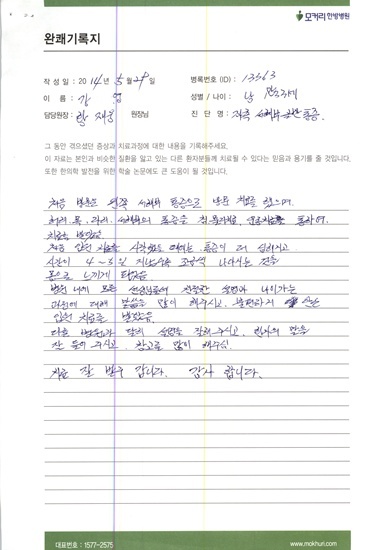 모커리한방병원
완쾌기록지
작성일 : 2014년 5월 29일
병록번호 (ID) : 13563
이 름 : 강 엽
성별 / 나이 : 남
담당원장 : 원장님
진 단 명 : 좌측 통증.
그 동안 겪으셨던 증상과 치료과정에 대한 내용을 기록해주세요.
이 자료는 본인과 비슷한 질환을 앓고 있는 다른 환자분들께 치료될 수 있다는 믿음과 용기를 줄 것입니다.
또한 한의학 발전을 위한 학술 논문에도 큰 도움이 될 것입니다.
처음 왼쪽 서혜부 통증으로 치료 했으며,
허리, 목, 서혜부의 통증을 통하여,
치료를 받았음
처음 입원 치료를 시작했을 때에는 통증이 더 심해지고
시간이 4~5일 지날수록 조금씩 나아지는 것을
몸으로 느끼게 되었음
병원 내에 모든 선생님들이 친절한 설명과 나아가는
과정에 대해 말씀을 많이 해주시고, 불편하지 않은
입원 치료를 받았음.
다른 병원과 달리 설명을 잘해 주시고, 환자의 말을
잘 들어 주시고, 참고로 많이 해주심.
치료 잘 받구 갑니다. 감사 합니다.
대표전화 : 1577-2575
www.mokhuri.com